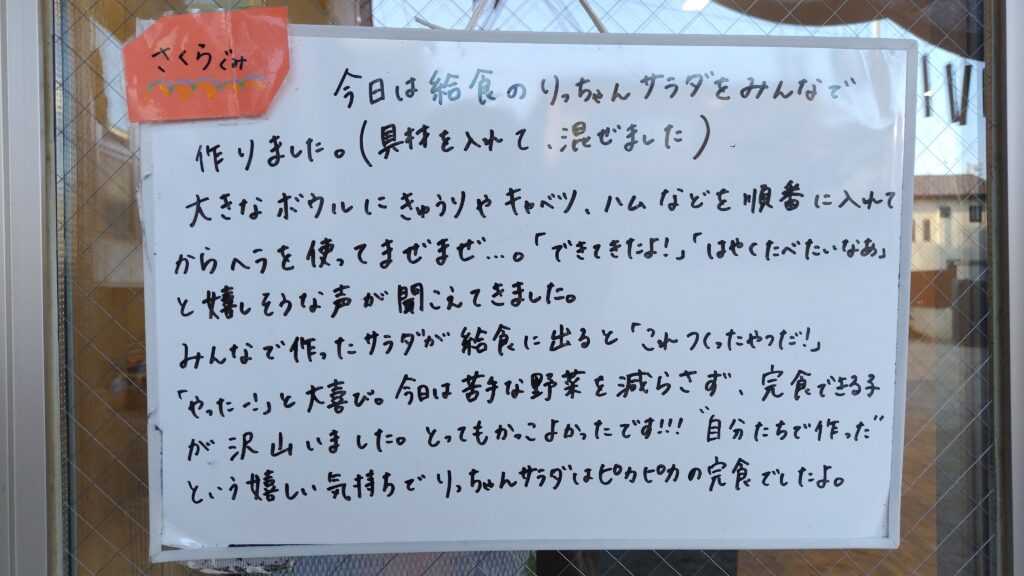 さくらぐみ
今日は給食のりっちゃんサラダをみんなで
作りました。(具材を入れて、混ぜました)
大きなボウルにきゅうりやキャベツ、ハムなどを順番に入れて
からヘラを使ってまぜまぜ…。「できてきたよ!」「はやくたべたいなあ」
と嬉しそうな声が聞こえてきました。
みんなで作ったサラダが給食に出ると「これつくったやつだ!」
「やったー!」と大喜び。今日は苦手な野菜を減らさず、完食できる子
が沢山いました。とってもかっこよかったです!!!"自分たちで作った"
という嬉しい気持ちでりっちゃんサラダはピカピカの完食でしたよ。